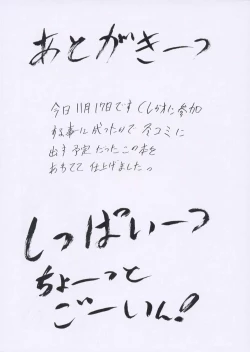 あとがきーっ
今日11月17日です くしケットに参加
する事に成ったので 冬コミに
出す予定だったこの本を
あわてて仕上げました。
しっぱいーっ
ちょーっと
ごーいん!